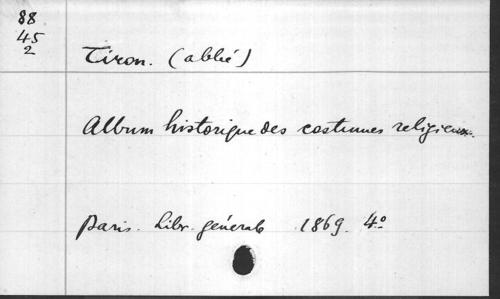 88
45
2
Tiron. (abbé)
Album historique des costumes religieux.
Paris. Libr. générale 1869. 4º